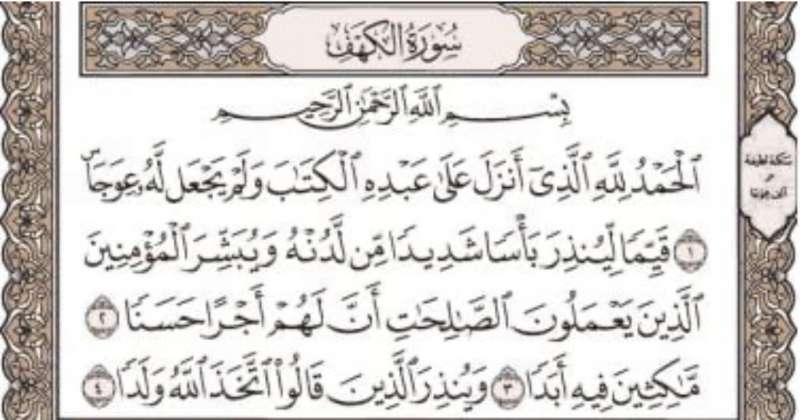 سُورَةُ الكَهْفِ
بِسْمِ ٱللَّهِ ٱلرَّحْمَٰنِ ٱلرَّحِيمِ
ٱلْحَمْدُ لِلَّهِ ٱلَّذِىٓ أَنزَلَ عَلَىٰ عَبْدِهِ ٱلْكِتَٰبَ وَلَمْ يَجْعَل لَّهُۥ عِوَجَاۜ
سكتة لطيفة
١ قَيِّمًا لِّيُنذِرَ بَأْسًا شَدِيدًا مِّن لَّدُنْهُ وَيُبَشِّرَ ٱلْمُؤْمِنِينَ
ٱلَّذِينَ يَعْمَلُونَ ٱلصَّٰلِحَٰتِ أَنَّ لَهُمْ أَجْرًا حَسَنًا ٢
مَّٰكِثِينَ فِيهِ أَبَدًا ٣ وَيُنذِرَ ٱلَّذِينَ قَالُوا۟ ٱتَّخَذَ ٱللَّهُ وَلَدًا ٤